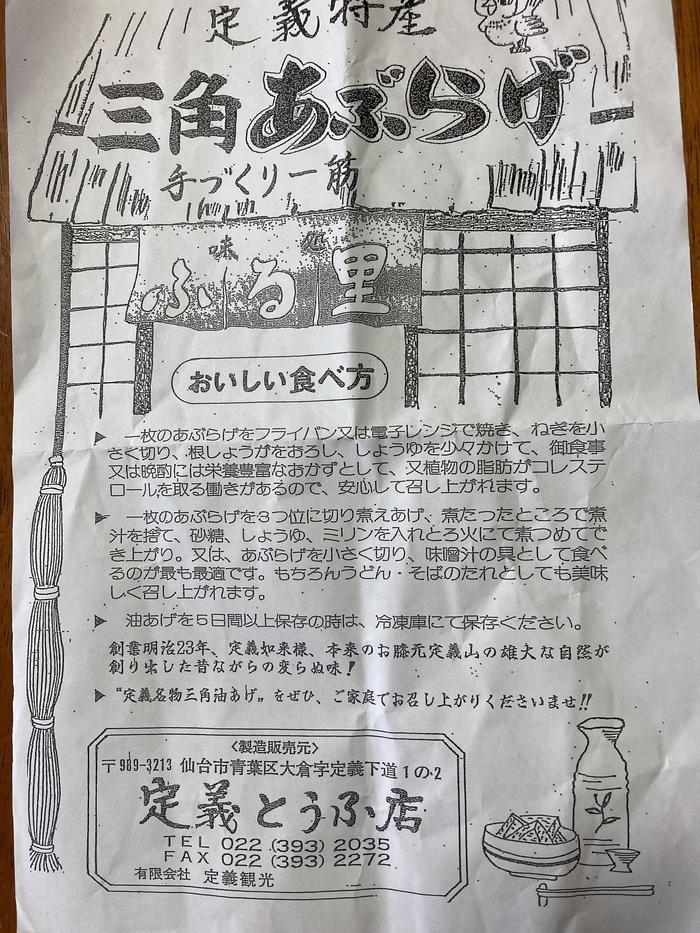 定義特産
三角あぶらげ
手づくり一筋
味処
ふる里
おいしい食べ方
▶ 一枚のあぶらげをフライパン又は電子レンジで焼き、ねぎを小
さく切り、根しょうがをおろし、しょうゆを少々かけて、御食事
又は晩酌には栄養豊富なおかずとして、又植物の脂肪がコレステ
ロールを取る働きがあるので、安心して召し上がれます。
▶ 一枚のあぶらげを3つ位に切り煮えあげ、煮たつたところで煮
汁を捨て、砂糖、しょうゆ、ミリンを入れとろ火にて煮つめてで
き上がり。又は、あぶらげを小さく切り、味噌汁の具として食べ
るのが最も最適です。もちろんうどん・そばのたれとしても美味
しく召し上がれます。
▶ 油あげを5日間以上保存の時は、冷凍庫にて保存ください。
創業明治23年、定義如来様、本来のお膝元定義山の雄大な自然が
創り出した昔ながらの変らぬ味!
▶ “定義名物三角油あげ〟をぜひ、ご家庭でお召し上がりくださいませ!!
〈製造販売元〉
〒989-3213 仙台市青葉区大倉字定義下道1の2
定義とうふ店
TEL 022 (393) 2035
FAX 022 (393) 2272
有限会社 定義観光